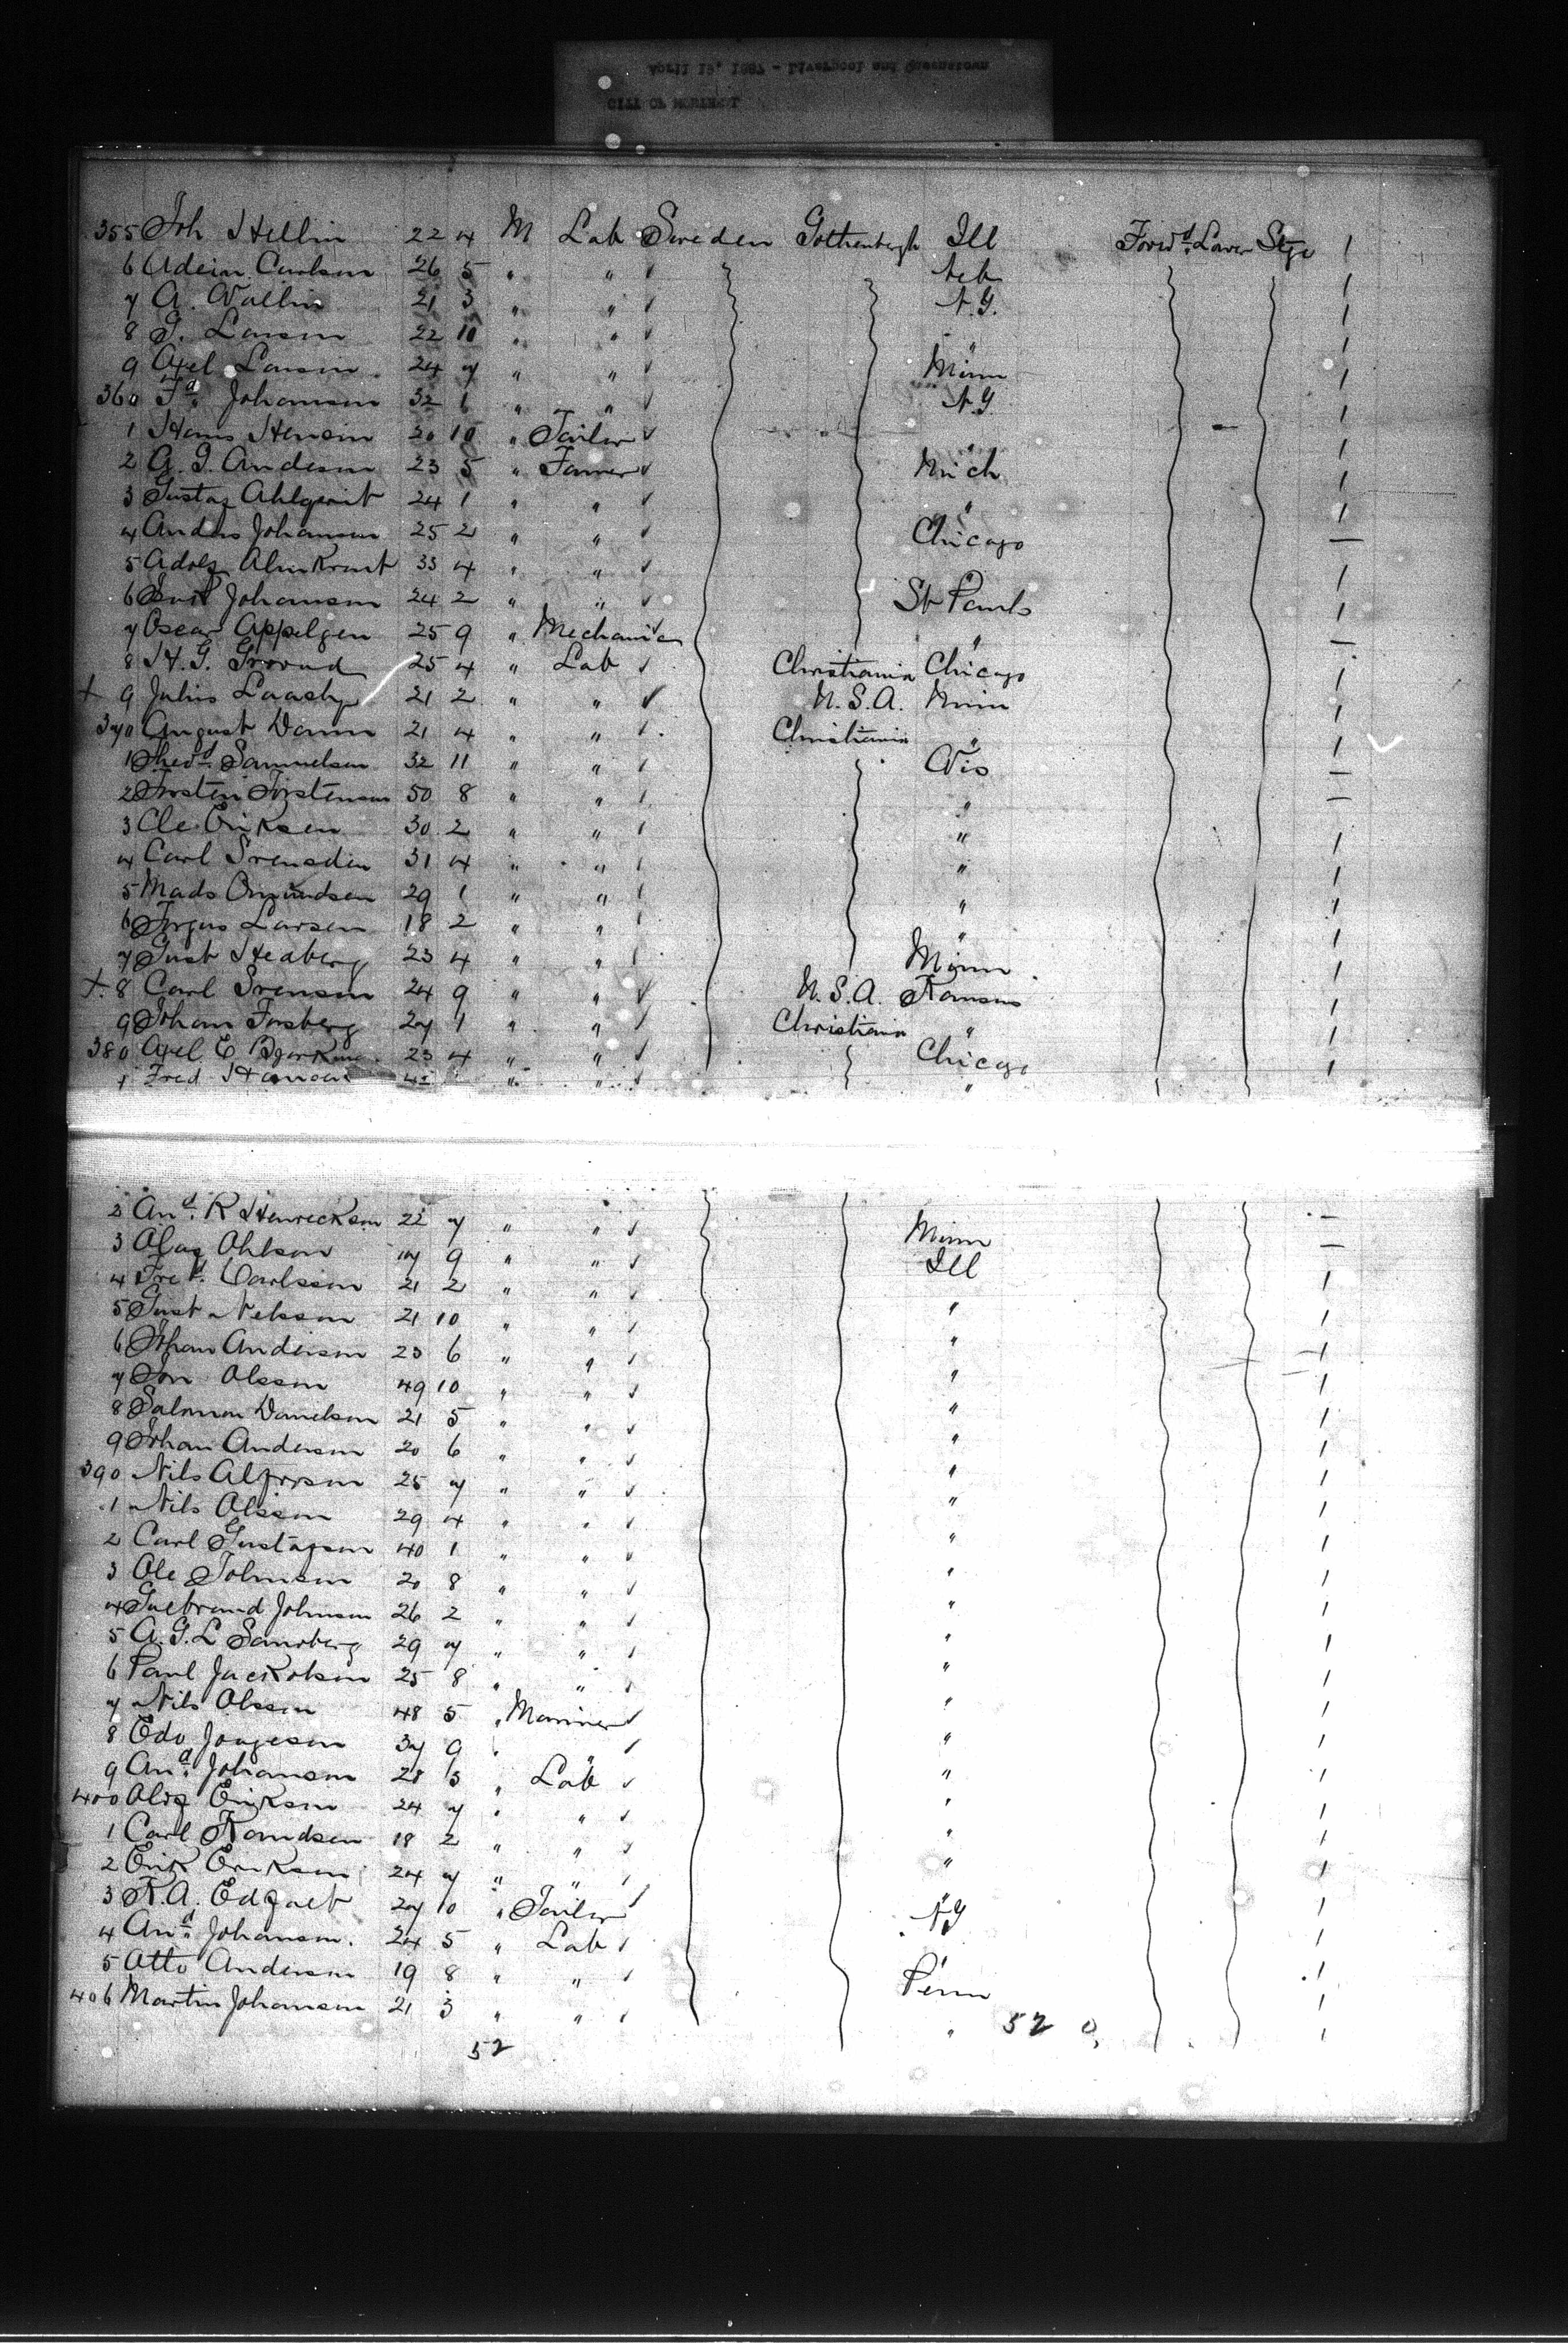 355 Joh Hellin 22 4 M Lab Sweden Gothenbergh Ill Forwd. Lower Stge 1
6 Carlson 26 5 " " ✓ Neb 1
7 A. Wallin 21 3 " " ✓ N.Y. 1
8 G. Larson 22 10 " " ✓ " 1
9 Axel Larsin 24 7 " " ✓ Minn 1
360 Fd. Johanson 32 1 " " ✓ N.Y. 1
1 Hans Hensin 20 10 " Tailor ✓ " 1
2 A. G. Anderson 23 5 " Farmer ✓ Mich 1
3 Gustaf Ahlqvist 24 1 " " ✓ " 1
4 Anders Johanson 25 2 " " ✓ Chicago —
5 Adolf Almkrant 33 4 " " ✓ " 1
6 Johanson 24 2 " " ✓ St Pauls 1
7 Oscar Appelgen 25 9 " Mechanic ✓ " —
8 H. G. 25 4 " Lab ✓ Christiania Chicago 1
+ 9 Julis 21 2 " " ✓ U.S.A. Minn 1
370 August 21 4 " " ✓ Christiania " 1
1 Samuelson 32 11 " " ✓ Wis —
2 Torsten Torstenson 50 8 " " ✓ " —
3 Ole Eriksen 30 2 " " ✓ " 1
4 Carl Svensden 31 4 " " ✓ " 1
5 Mads Omundsen 29 1 " " ✓ " 1
6 Larsen 18 2 " " ✓ " 1
7 Gust Hedberg 23 4 " " ✓ Minn 1
+ 8 Carl Svenson 24 9 " " ✓ U.S.A. Kansas 1
9 Johan Forsberg 27 1 " " ✓ Christiania " 1
380 Axel E 23 4 " " ✓ Chicago 1
1 Fred " " ✓ "
2 And. R Henreckson 22 7 " " ✓ Minn —
3 Olaf Ohlson 17 9 " " ✓ Ill —
4 Fred. Carlsson 21 2 " " ✓ " 1
5 Gust Nelsson 21 10 " " ✓ " 1
6 Johan Anderson 23 6 " " ✓ " 1
7 Jon Olsson 49 10 " " ✓ " 1
8 Salomon Danielson 21 5 " " ✓ " 1
9 Johan Anderson 20 6 " " ✓ " 1
390 Nils 25 7 " " ✓ " 1
1 Nils Olsson 29 4 " " ✓ " 1
2 Carl Gustafson 40 1 " " ✓ " 1
3 Ole Johnson 20 8 " " ✓ " 1
4 Johnson 26 2 " " ✓ " 1
5 A. G. L Sandberg 29 7 " " ✓ " 1
6 Paul Jackobson 25 8 " " ✓ " 1
7 Nils Olsson 48 5 " Mariner ✓ " 1
8 Edv 37 9 " " ✓ " 1
9 And. Johanson 28 3 " Lab ✓ " 1
400 Olof Erikson 24 7 " " ✓ " 1
1 Carl 18 2 " " ✓ " 1
2 Erik Erikson 24 7 " " ✓ " 1
3 K. A. 27 10 " Tailor ✓ NY 1
4 And. Johanson. 24 5 " Lab ✓ " 1
5 Otto Anderson 19 8 " " ✓ Penn 1
406 Martin Johanson 21 3 " " ✓ " 1
52 52